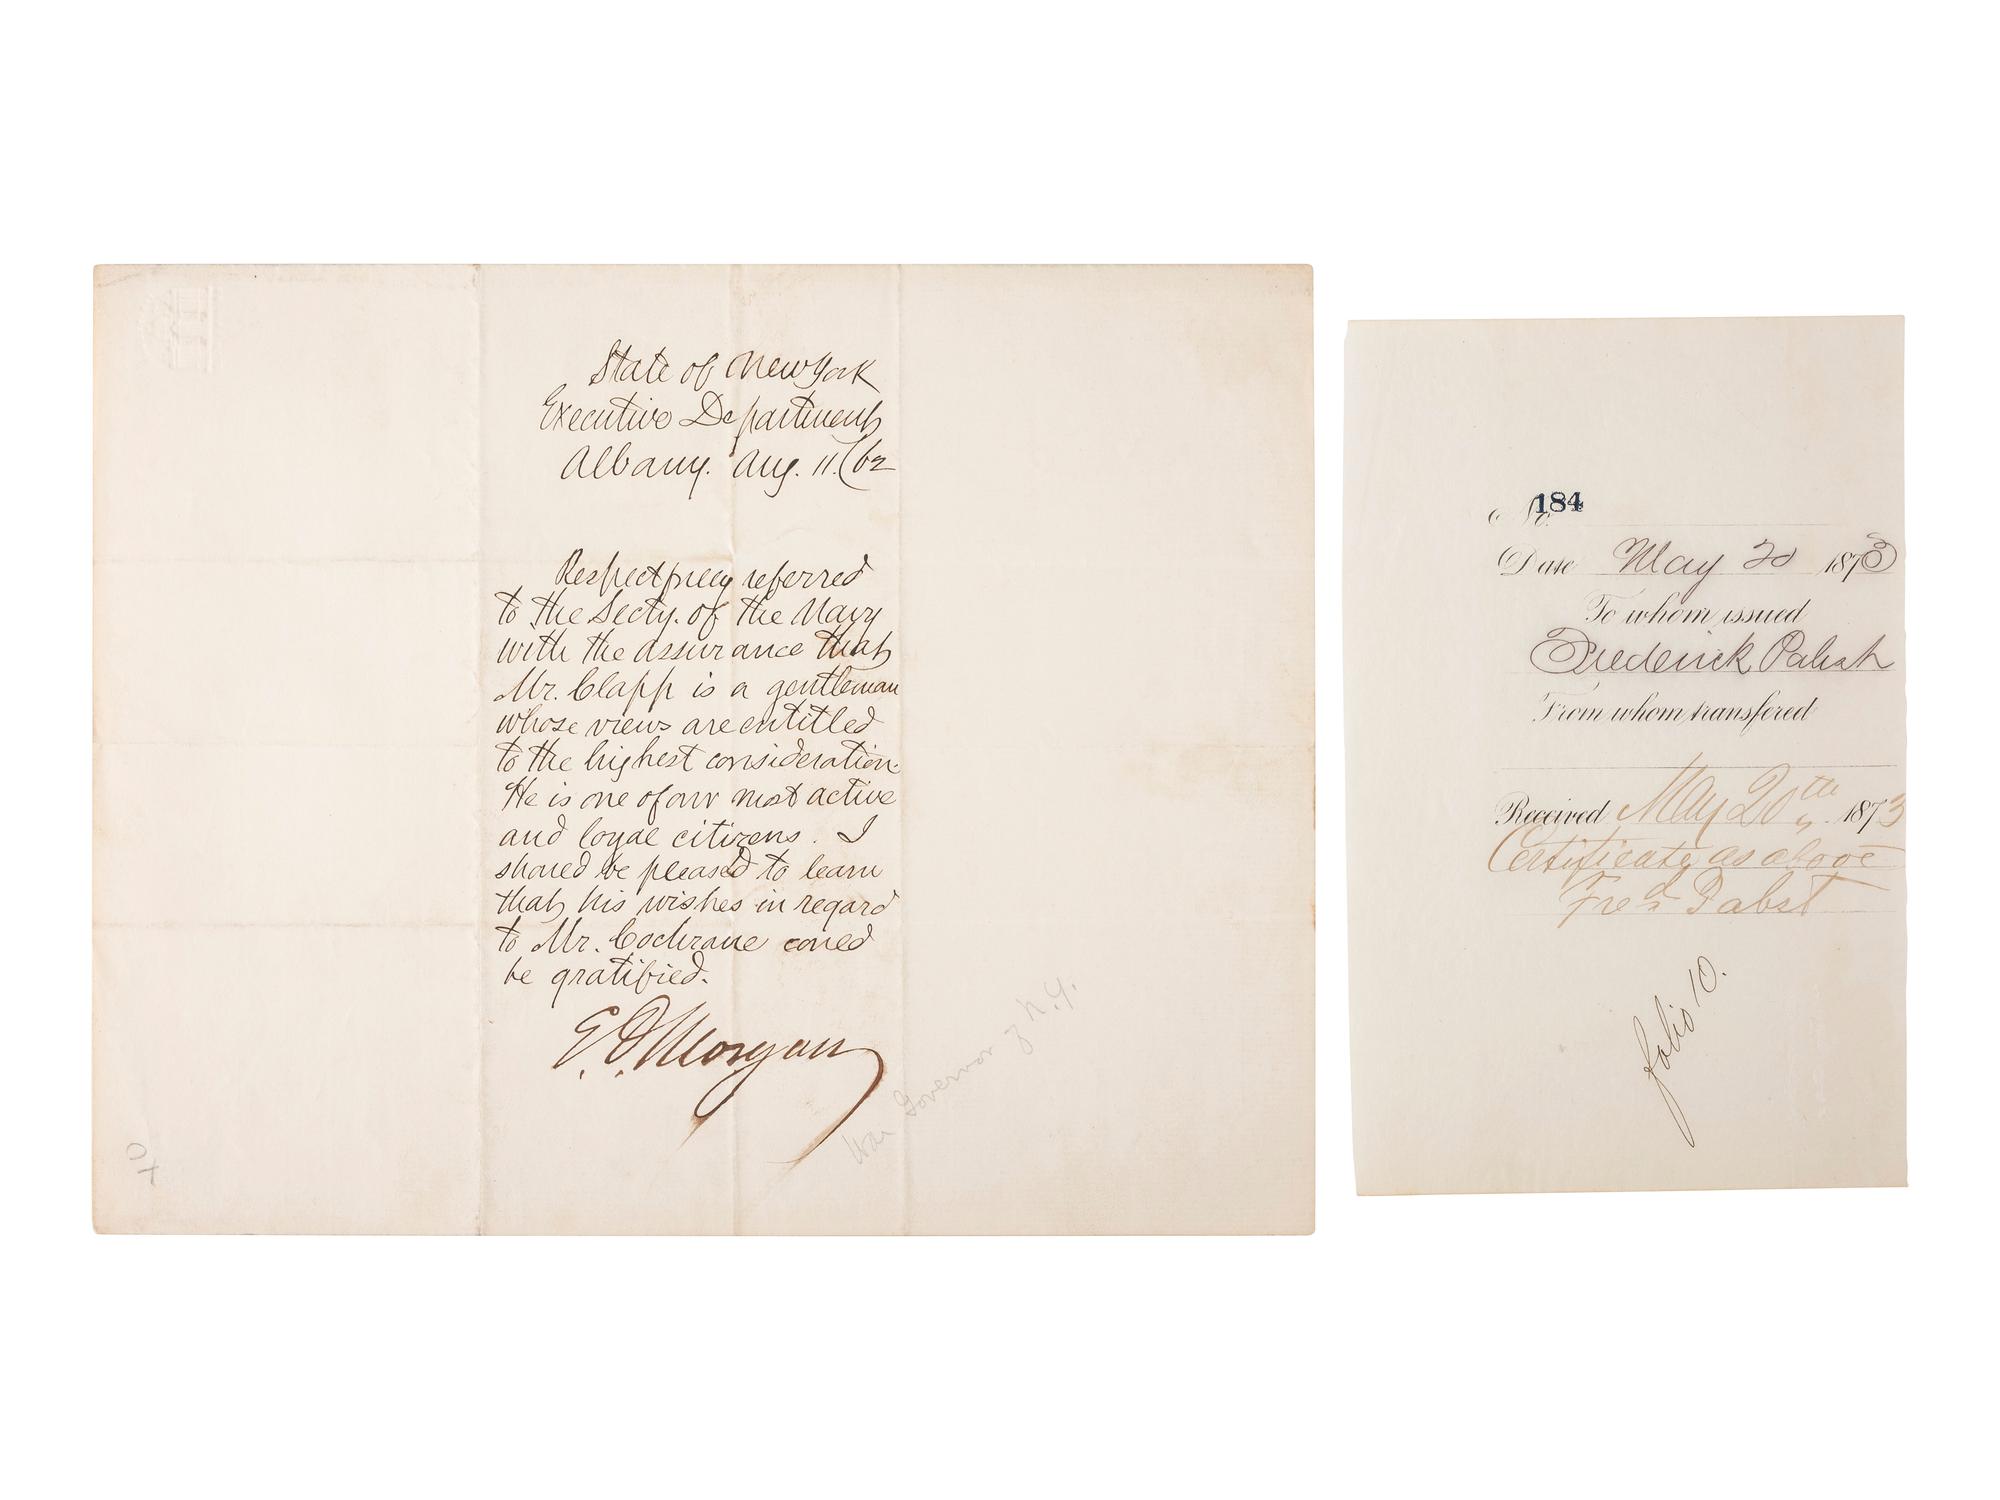 State of New York
Executive Department
Albany. Aug. 11. /62
Respectfully referred
to the Secty. of the Navy
with the assurance that
Mr. Clapp is a gentleman
whose views are entitled
to the highest consideration.
He is one of our most active
and loyal citizens. I
should be pleased to learn
that his wishes in regard
to Mr. Cochrane could
be gratified.
E. D. Morgan
War Governor of N.Y.
No. 184
Date May 20 1873
To whom issued
Frederick Pabst
From whom transfered
Received May 20th 1873
Certificate as above
Fred Pabst
folio 10.